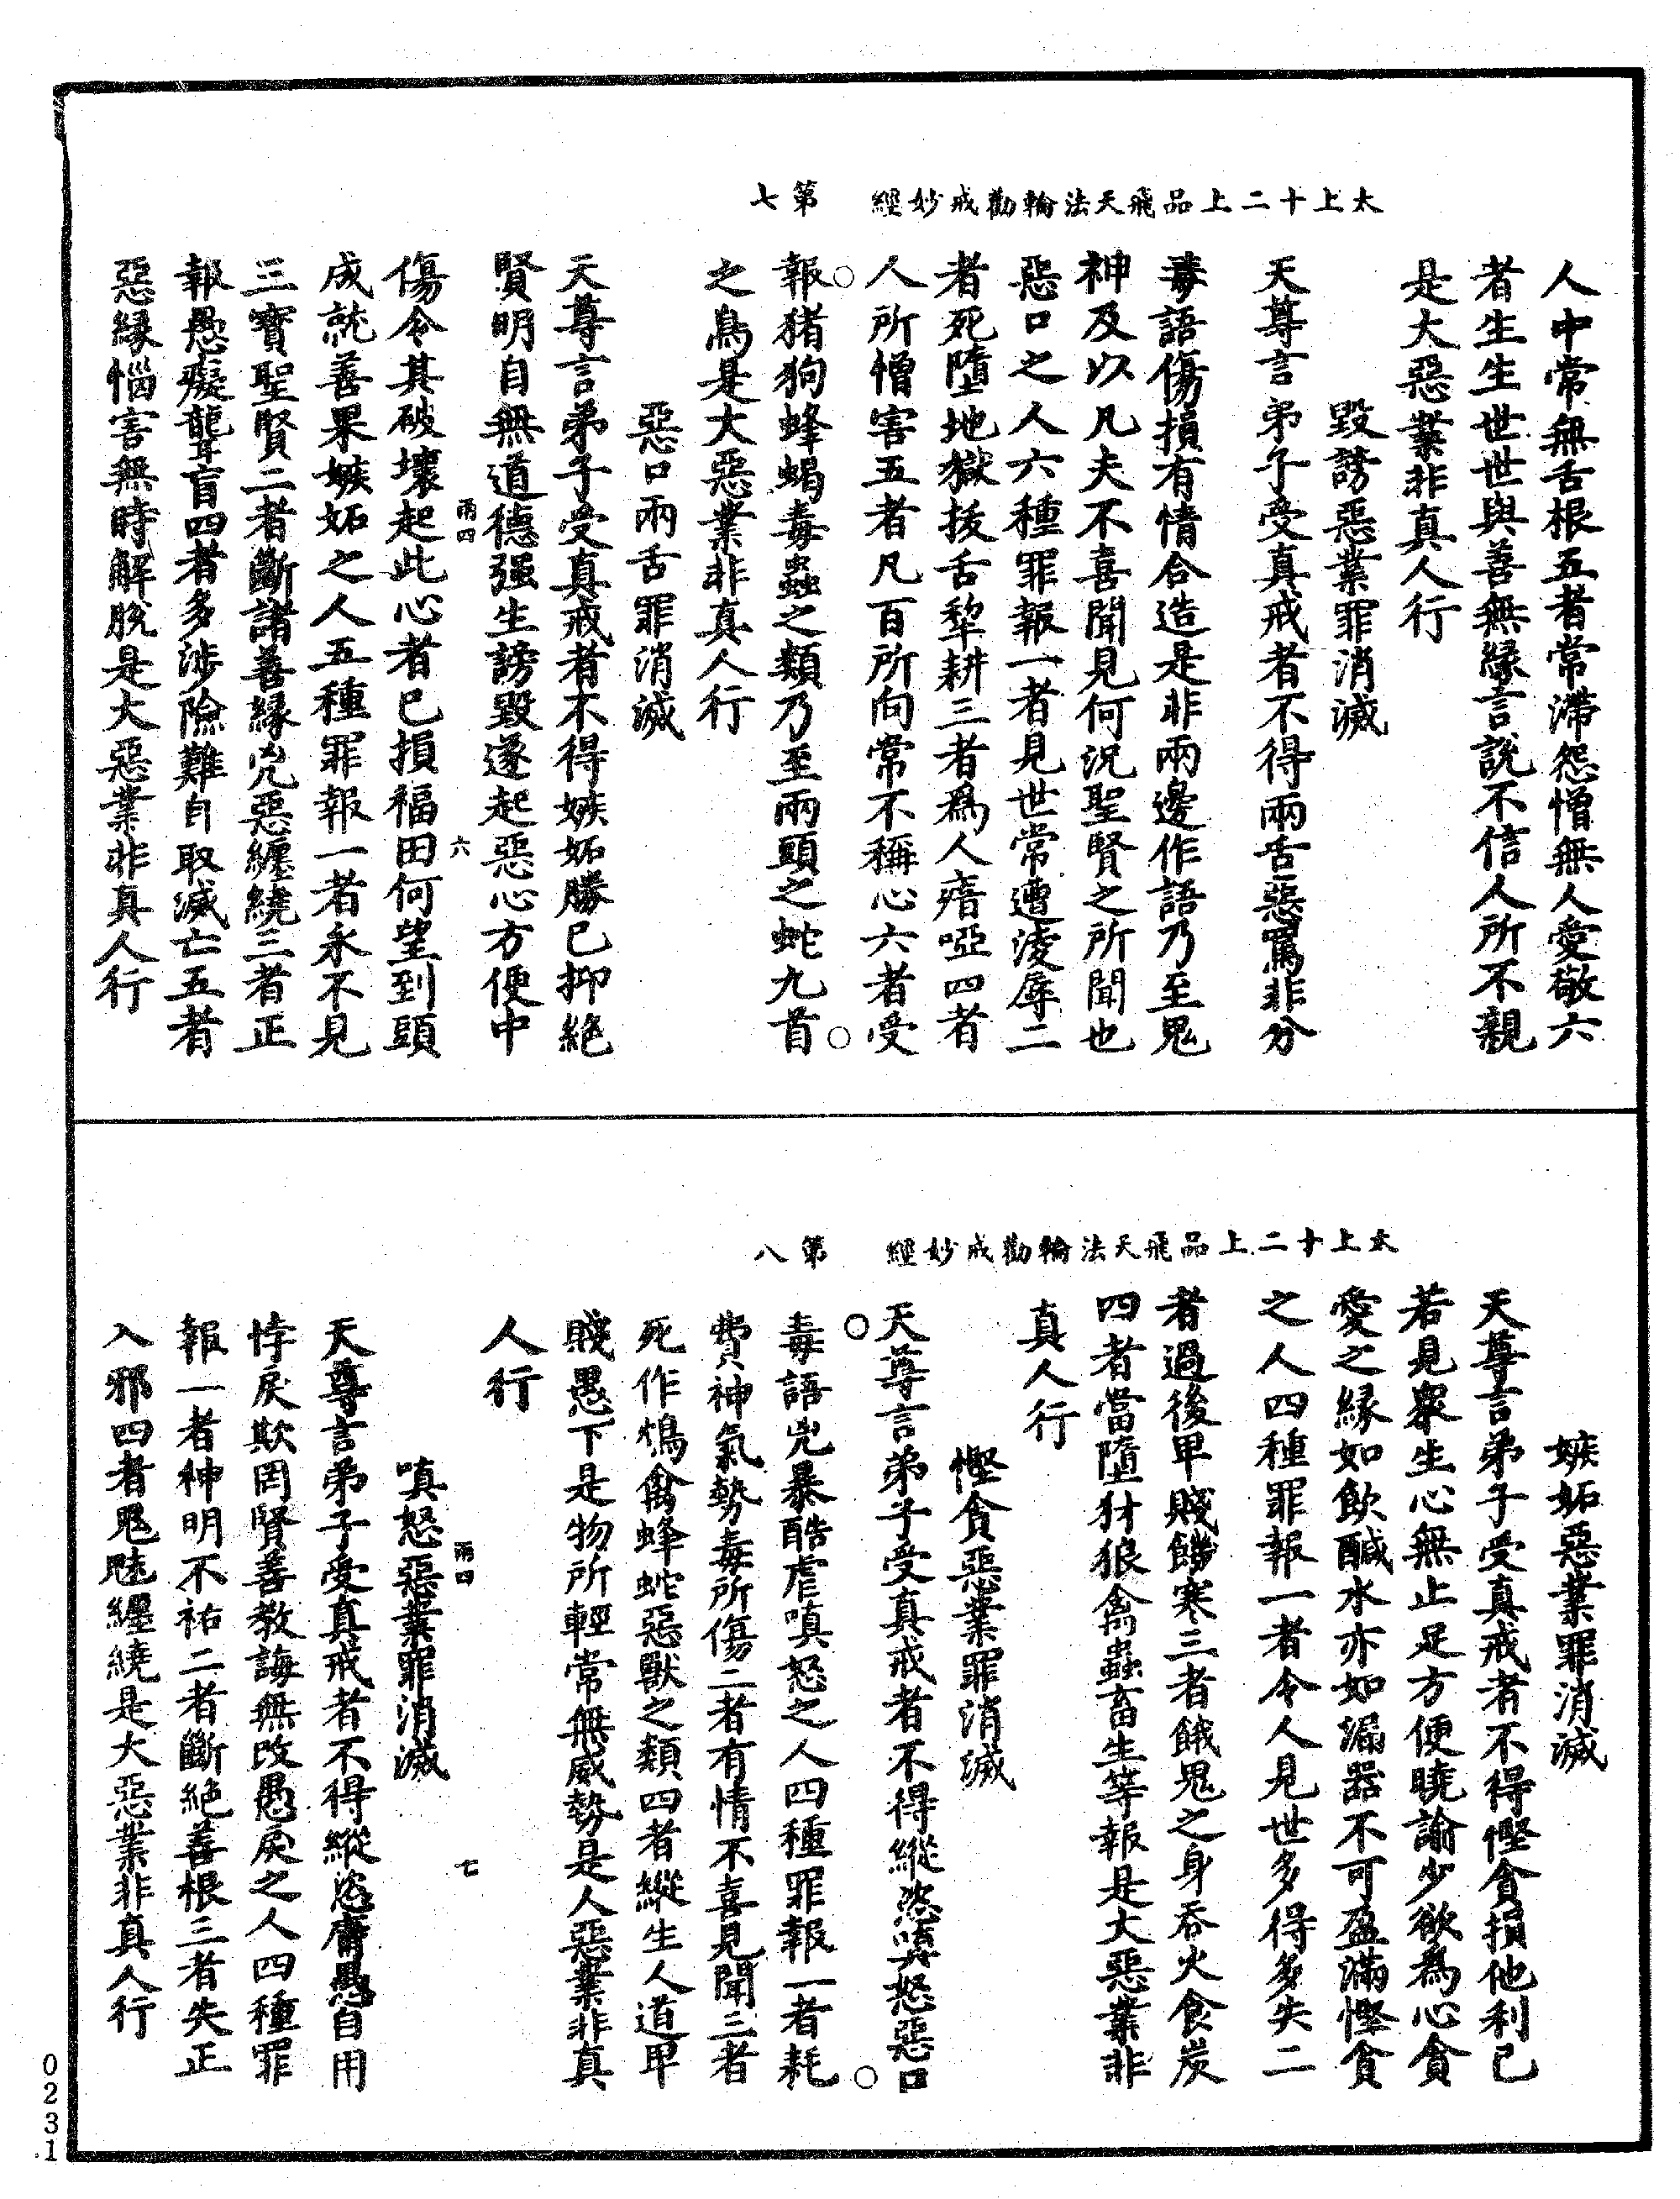 太上十二上品飛天法輪勸戒妙經 第七
人中常無舌根五者常滯怨憎無人愛敬六
者生生世世與善無緣言說不信人所不親
是大惡業非真人行
毀謗惡業罪消滅
天尊言弟子受真戒者不得兩舌惡罵非分
毒語傷損有情合造是非兩邊作語乃至鬼
神及以凡夫不喜聞見何況聖賢之所聞也
惡口之人六種罪報一者見世常遭淩辱二
者死墮地獄拔舌犂耕三者為人瘖啞四者
人所憎害五者凡百所向常不稱心六者受
報猪狗蜂蝎毒蟲之類乃至兩頭之蛇九首
之鳥是大惡業非真人行
惡口兩舌罪消滅
天尊言弟子受真戒者不得嫉妬勝已抑絕
賢明自無道德强生謗毀遂起惡心方便中
雨四 六
傷令其破壞起此心者已損福田何望到頭
成就善果嫉妬之人五種罪報一者永不見
三寶聖賢二者斷諸善緣兇惡纏繞三者正
報愚癡聾盲四者多涉險難自取滅亡五者
惡緣惱害無時解脫是大惡業非真人行
太上十二上品飛天法輪勸戒妙經 第八
嫉妬惡業罪消滅
天尊言弟子受真戒者不得慳貪損他利己
若見衆生心無止足方便曉諭少欲為心貪
愛之緣如飲鹹水亦如漏器不可盈滿慳貪
之人四種罪報一者令人見世多得多失二
者過後卑賤餓寒三者餓鬼之身吞火食炭
四者當墮豺狼禽蟲畜生等報是大惡業非
真人行
慳貪惡業罪消滅
天尊言弟子受真戒者不得縱恣嗔怒惡口
毒語兇暴酷虐嗔怒之人四種罪報一者耗
費神氣勢毒所傷二者有情不喜見聞三者
死作鴆禽蜂蛇惡獸之類四者縱生人道卑
賤愚下是物所輕常無威勢是人惡業非真
人行
嗔怒惡業罪消滅
雨四 七
天尊言弟子受真戒者不得縱恣庸愚自用
悖戾欺罔賢善教誨無改愚戾之人四種罪
報一者神明不祐二者斷絕善根三者失正
入邪四者鬼魅纏繞是大惡業非真人行
0231